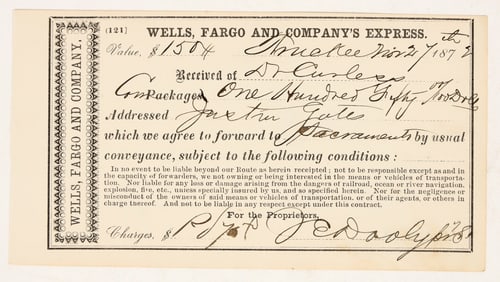 WELLS, FARGO AND COMPANY,
(121) WELLS, FARGO AND COMPANY'S EXPRESS.
Value, $ 150 Truckee Nov 27th 1872
Received of Dr Curless
Packages One Hundred Fifty
Addressed Justin Gates
which we agree to forward to Sacramento by usual
conveyance, subject to the following conditions:
In no event to be liable beyond our Route as herein receipted; not to be responsible except as and in
the capacity of forwarders, we not owning or being interested in the means or vehicles of transporta-
tion. Nor liable for any loss or damage arising from the dangers of railroad, ocean or river navigation,
explosion, fire, etc., unless specially insured by us, and so specified herein. Nor for the negligence or
misconduct of the owners of said means or vehicles of transportation, or of their agents, or others in
charge thereof. And not to be liable in any respect except under this contract.
For the Proprietors,
Charges, $ Pd